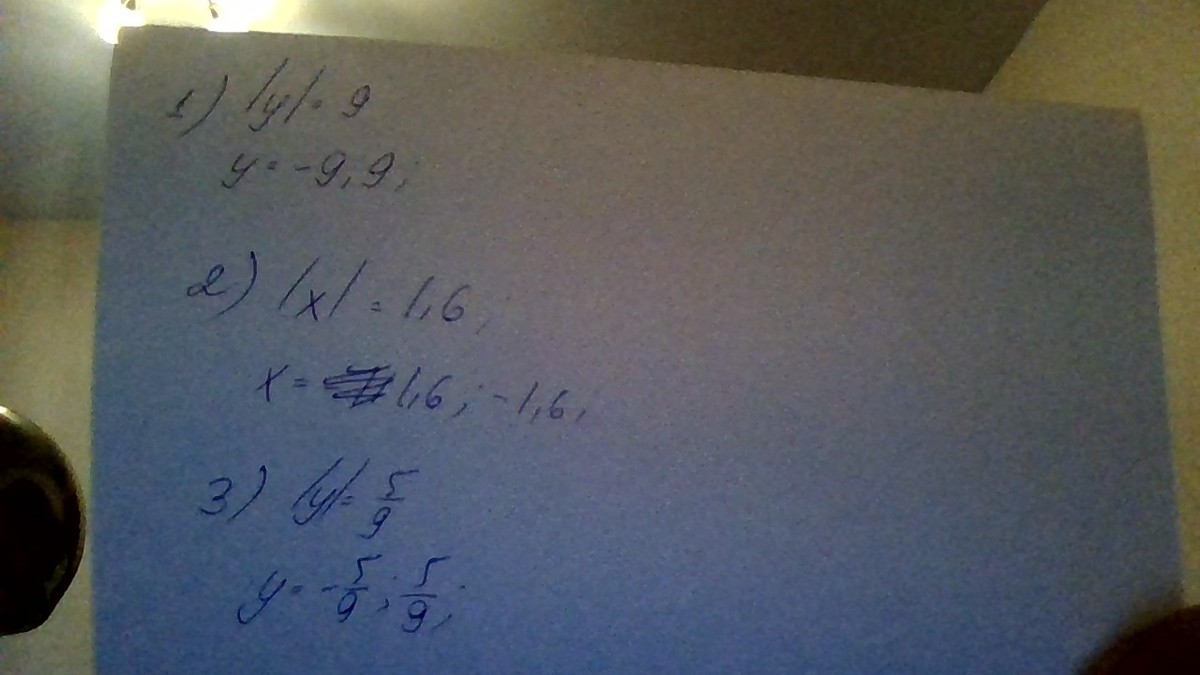 1) |y| = 9
y = -9, 9;
2) |x| = 1,6;
x = 1,6; -1,6;
3) |y| = 5/9
y = -5/9; 5/9;